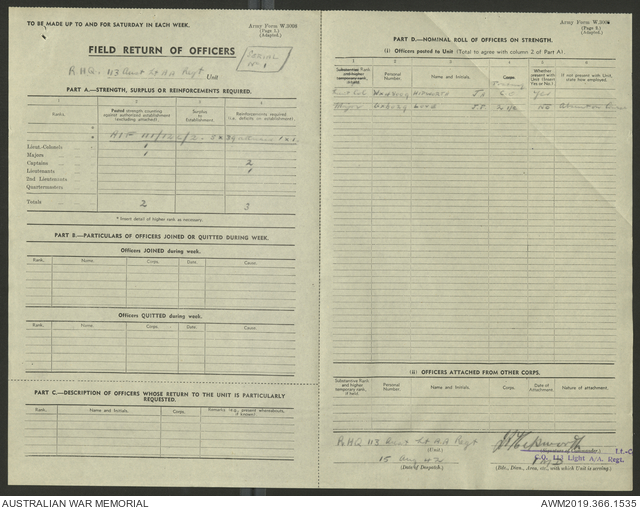 TO BE MADE UP TO AND FOR SATURDAY IN EACH WEEK.
Army Form W.3008
(Page 1.)
(Adapted.)
FIELD RETURN OF OFFICERS
SERIAL
No 1
R.H.Q. 113 Aust Lt A.A. Regt Unit
PART A.—STRENGTH, SURPLUS OR REINFORCEMENTS REQUIRED.
1. 2. 3. 4.
Ranks.
Posted strength counting against authorised establishment (excluding attached).
Surplus to Establishment.
Reinforcements required. (i.e. deficits on establishment)
Lieut.-Colonels 1
Majors 1
Captains 2
Lieutenants 1
2nd Lieutenants
Quartermasters
Totals 2 3
* Insert detail of higher rank as necessary.
PART B.—PARTICULARS OF OFFICERS JOINED OR QUITTED DURING WEEK.
Officers JOINED during week.
Rank. Name. Corps. Date. Cause.
Officers QUITTED during week.
Rank. Name. Corps. Date. Cause.
PART C.—DESCRIPTION OF OFFICERS WHOSE RETURN TO THE UNIT IS PARTICULARLY REQUESTED.
Rank. Name and Initials. Corps. Remarks (e.g., present whereabouts, if known).
Army Form W.3008
(Adapted.)
PART D.—NOMINAL ROLL OF OFFICERS ON STRENGTH.
(i) Officers posted to Unit (Total to agree with column 2 of Part A).
Substantive Rank and higher temporary rank, if held.
Personal Number.
Name and Initials.
Corps.
Whether present with Unit (Insert Yes or No.)
If not present with Unit, state how employed.
HEPWORTH
Yes
Major
(ii) OFFICERS ATTACHED FROM OTHER CORPS.
Substantive Rank and higher temporary rank, if held.
Personal Number.
Name and Initials.
Corps.
Date of Attachment.
Nature of attachment.
R.H.Q 113 Aust Lt A.A Regt
(Unit)
15 Aug 42
(Date of Despatch.)
Hepworth
Lt.-Col
C.O. 113 Light A/A. Regt.
(Bde., Divn., Area, etc., with which Unit is serving.)
AUSTRALIAN WAR MEMORIAL
AWM2019.366.1535